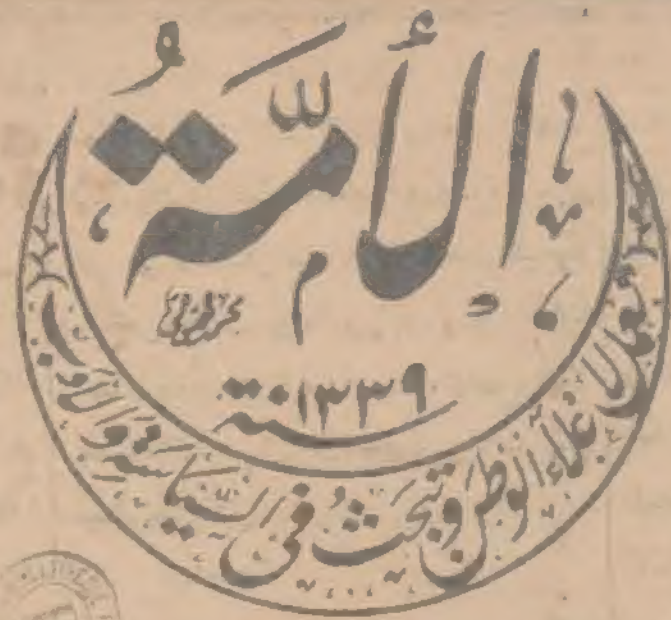 الأمّةُ
سنة ١٣٣٩
تعمل لإعلاء الوطن وتبحثُ في السياسة والأدب